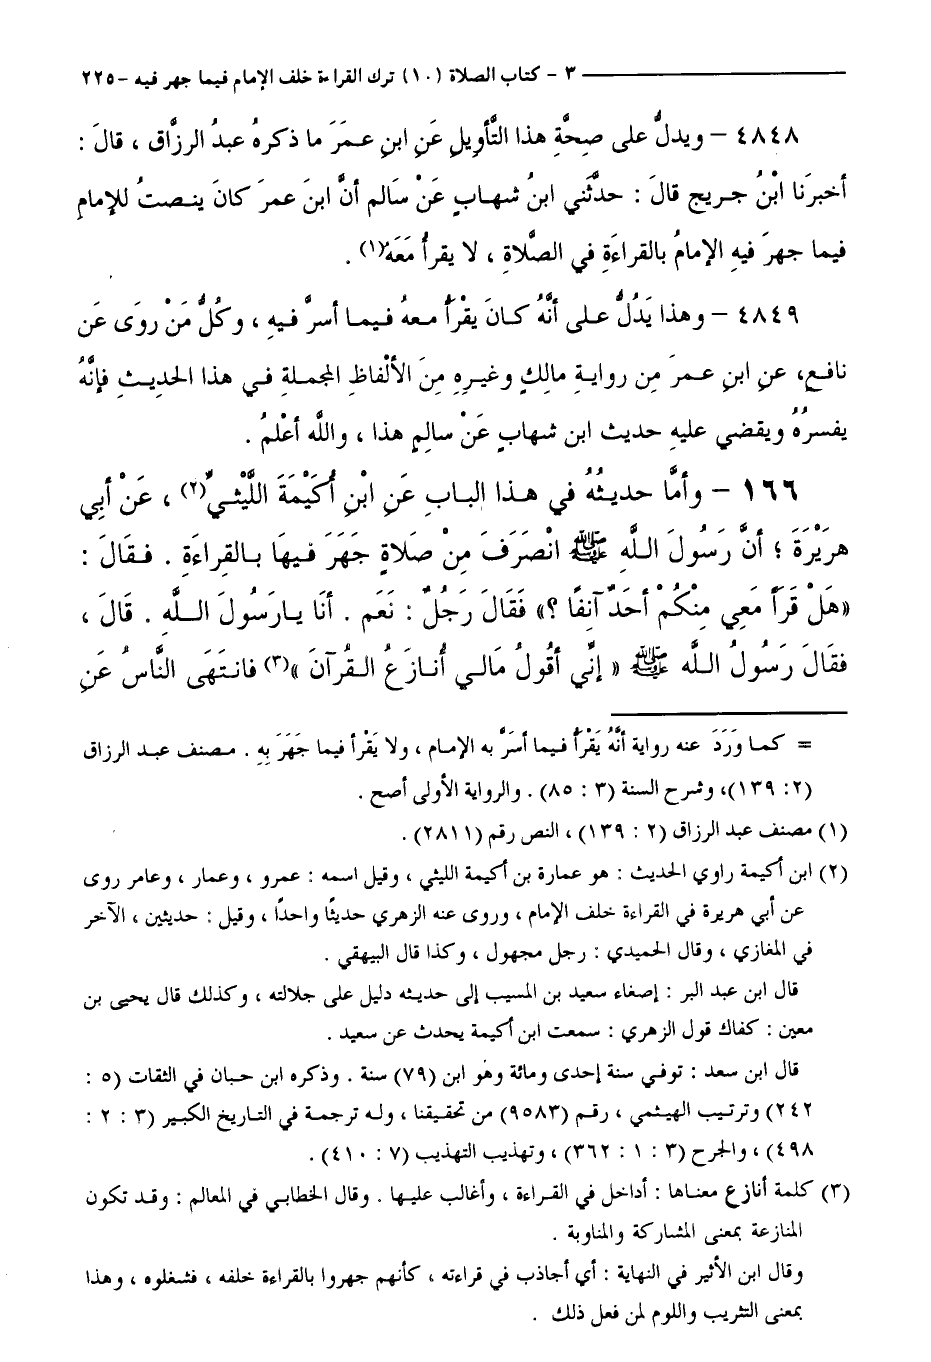 ٣ - كتاب الصلاة (١٠) ترك القراءة خلف الإمام فيما جهر فيه - ٢٢٥
٤٨٤٨ – ويدلُّ على صِحَّةِ هذا التَّأويلِ عَنِ ابنِ عمَرَ ما ذكرهُ عبدُ الرزَّاق ، قالَ :
أخبرَنا ابْنُ جريج قالَ : حدَّثَني ابنُ شهابٍ عَنْ سَالم أنَّ ابنَ عمرَ كانَ ينصتُ للإمامِ
فيما جهرَ فيهِ الإمامُ بالقراءَةِ في الصَّلاةِ ، لا يقرأُ مَعَهُ(١) .
٤٨٤٩ – وهذا يَدُلُّ على أنَّهُ كانَ يقْرَأُ معهُ فيما أسرَّ فيهِ ، وكُلُّ مَنْ روَى عَن
نافعٍ، عنِ ابنِ عمرَ مِن روايةِ مالكٍ وغيرِهِ مِنَ الألْفاظِ المجملةِ في هذا الحديثِ فإنَّهُ
يفسرُهُ ويقضي عليهِ حديث ابن شهابٍ عَنْ سالمٍ هذا ، واللَّه أعْلمُ .
١٦٦ – وأمَّا حديثُهُ في هذا البابِ عَنِ ابْنِ أُكَيْمَةَ اللَّيْثيِّ(٢) ، عَنْ أبي
هرَيْرَةَ ؛ أنَّ رَسُولَ اللَّهِ ﷺ انْصَرَفَ مِنْ صَلاةٍ جَهَرَ فيهَا بالقِراءَةِ . فقَالَ :
«هَلْ قرَأَ مَعِي مِنكُمْ أحَدٌ آنفًا ؟» فَقَالَ رَجُلٌ : نَعَم . أنَا يارَسُولَ اللَّهِ . قَالَ ،
فقَالَ رَسُولُ اللَّه ﷺ « إنِّي أقُولُ مَالي أُنَازَعُ القُرآنَ »(٣) فانتَهَى النَّاسُ عَنِ
= كما وَرَدَ عنه رواية أنَّهُ يَقْرَأُ فيما أسَرَّ به الإمام ، ولا يَقْرأ فيما جَهَرَ بِهِ . مصنف عبد الرزاق
(٢: ١٣٩)، وشرح السنة (٣ : ٨٥) . والرواية الأولى أصح .
(١) مصنف عبد الرزاق (٢ : ١٣٩) ، النص رقم (٢٨١١) .
(٢) ابن أكيمة راوي الحديث : هو عمارة بن أكيمة الليثي ، وقيل اسمه : عمرو ، وعمار ، وعامر روى
عن أبي هريرة في القراءة خلف الإمام ، وروى عنه الزهري حديثًا واحدًا ، وقيل : حديثين ، الآخر
في المغازي ، وقال الحميدي : رجل مجهول ، وكذا قال البيهقي .
قال ابن عبد البر : إصغاء سعيد بن المسيب إلى حديثه دليل على جلالته ، وكذلك قال يحيى بن
معين : كفاك قول الزهري : سمعت ابن أكيمة يحدث عن سعيد .
قال ابن سعد : توفي سنة إحدى ومائة وهو ابن (٧٩) سنة . وذكره ابن حبان في الثقات (٥ :
٢٤٢) وترتيب الهيثمي ، رقم (٩٥٨٣) من تحقيقنا ، وله ترجمة في التاريخ الكبير (٣ : ٢ :
٤٩٨) ، والجرح (٣ : ١ : ٣٦٢) ، وتهذيب التهذيب (٧ : ٤١٠) .
(٣) كلمة أنازع معناها : أداخل في القراءة ، وأغالب عليها . وقال الخطابي في المعالم : وقد تكون
المنازعة بمعنى المشاركة والمناوبة .
وقال ابن الأثير في النهاية : أي أجاذب في قراءته ، كأنهم جهروا بالقراءة خلفه ، فشغلوه ، وهذا
بمعنى التثريب واللوم لمن فعل ذلك .